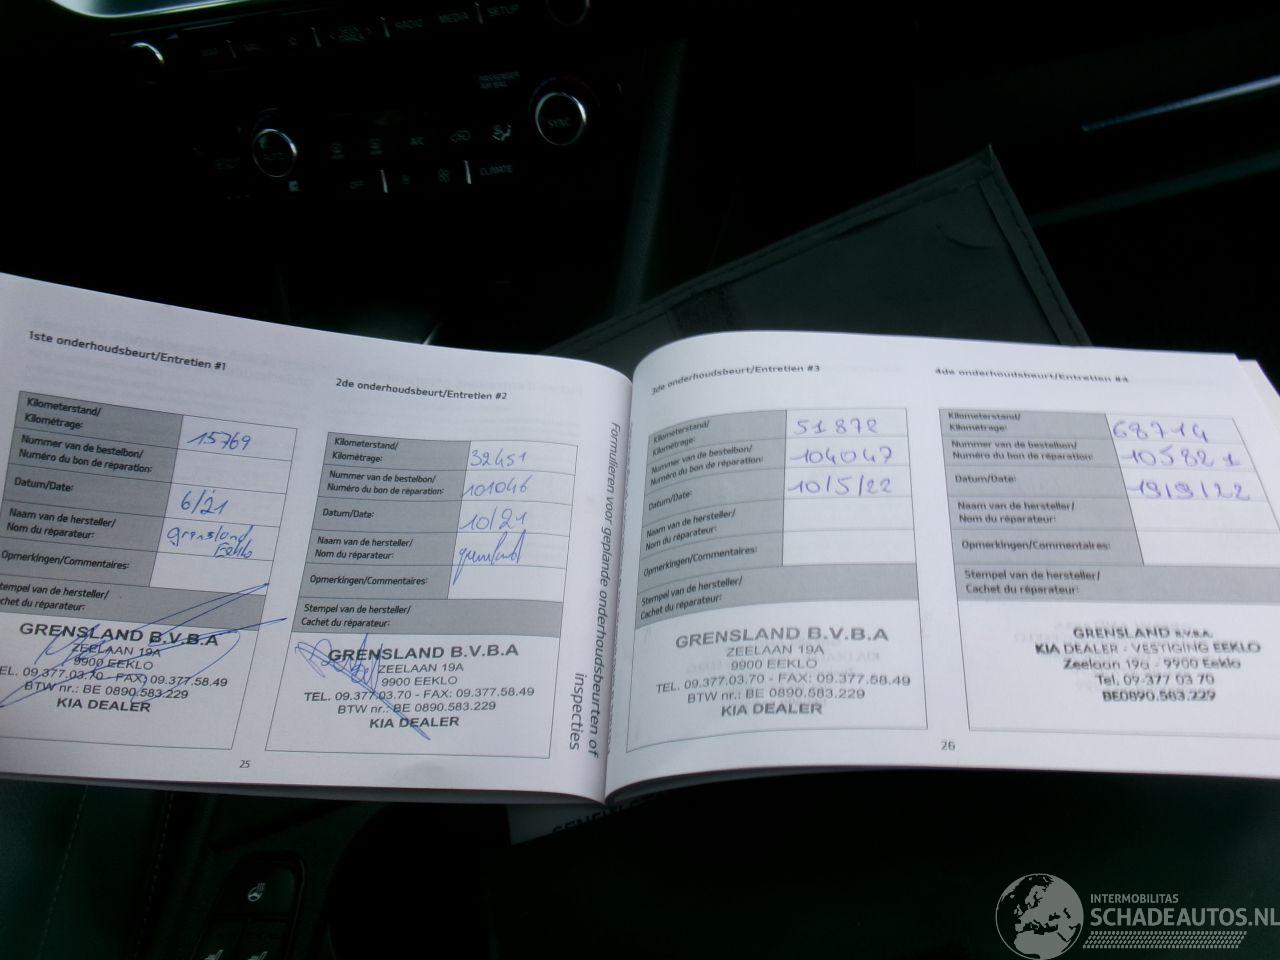 RADIO
MEDIA
SETUP
PASSENGER
AIR BAG
SYNC
A/C
OFF
CLIMATE
1ste onderhoudsbeurt/Entretien #1
Kilometerstand/
Kilométrage:
15769
Nummer van de bestelbon/
Numéro du bon de réparation:
Datum/Date:
6/21
Naam van de hersteller/
Nom du réparateur:
Grensland
Eeklo
Opmerkingen/Commentaires:
Stempel van de hersteller/
Cachet du réparateur:
GRENSLAND B.V.B.A
ZEELAAN 19A
9900 EEKLO
TEL. 09.377.03.70 - FAX: 09.377.58.49
BTW nr.: BE 0890.583.229
KIA DEALER
25
2de onderhoudsbeurt/Entretien #2
Kilometerstand/
Kilométrage:
32451
Nummer van de bestelbon/
Numéro du bon de réparation:
101046
Datum/Date:
10/21
Naam van de hersteller/
Nom du réparateur:
grensland
Opmerkingen/Commentaires:
Stempel van de hersteller/
Cachet du réparateur:
GRENSLAND B.V.B.A
ZEELAAN 19A
9900 EEKLO
TEL. 09.377.03.70 - FAX: 09.377.58.49
BTW nr.: BE 0890.583.229
KIA DEALER
Formulieren voor geplande onderhoudsbeurten of
inspecties
3de onderhoudsbeurt/Entretien #3
Kilometerstand/
Kilométrage:
51872
Nummer van de bestelbon/
Numéro du bon de réparation:
104047
Datum/Date:
10/5/22
Naam van de hersteller/
Nom du réparateur:
Opmerkingen/Commentaires:
Stempel van de hersteller/
Cachet du réparateur:
GRENSLAND B.V.B.A
ZEELAAN 19A
9900 EEKLO
TEL. 09.377.03.70 - FAX: 09.377.58.49
BTW nr.: BE 0890.583.229
KIA DEALER
26
4de onderhoudsbeurt/Entretien #4
Kilometerstand/
Kilométrage:
68714
Nummer van de bestelbon/
Numéro du bon de réparation:
105821
Datum/Date:
19/9/22
Naam van de hersteller/
Nom du réparateur:
Opmerkingen/Commentaires:
Stempel van de hersteller/
Cachet du réparateur:
GRENSLAND B.V.B.A.
KIA DEALER - VESTIGING EEKLO
Zeelaan 19a - 9900 Eeklo
Tel. 09-377 03 70
BE0890.583.229
INTERMOBILITAS
SCHADEAUTOS.NL